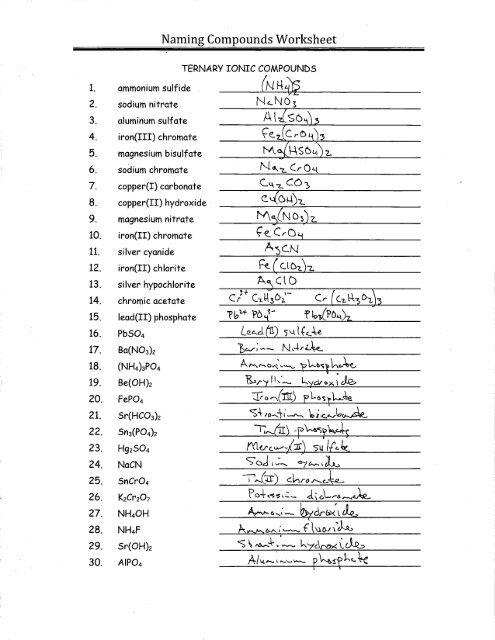 Naming Compounds Worksheet
TERNARY IONIC COMPOUNDS
1. ammonium sulfide (NH4)2S
2. sodium nitrate NaNO3
3. aluminum sulfate Al2(SO4)3
4. iron(III) chromate Fe2(CrO4)3
5. magnesium bisulfate Mg(HSO4)2
6. sodium chromate Na2CrO4
7. copper(I) carbonate Cu2CO3
8. copper(II) hydroxide Cu(OH)2
9. magnesium nitrate Mg(NO3)2
10. iron(II) chromate FeCrO4
11. silver cyanide AgCN
12. iron(II) chlorite Fe(ClO2)2
13. silver hypochlorite AgClO
14. chromic acetate Cr3+ C2H3O2- Cr(C2H3O2)3
15. lead(II) phosphate Pb2+ PO43- Pb3(PO4)2
16. PbSO4 Lead(II) sulfate
17. Ba(NO3)2 Barium Nitrate
18. (NH4)3PO4 Ammonium phosphate
19. Be(OH)2 Beryllium hydroxide
20. FePO4 Iron(III) phosphate
21. Sr(HCO3)2 Strontium bicarbonate
22. Sn3(PO4)2 Tin(II) phosphate
23. Hg2SO4 Mercury(I) sulfate
24. NaCN Sodium cyanide
25. SnCrO4 Tin(II) chromate
26. K2Cr2O7 Potassium dichromate
27. NH4OH Ammonium hydroxide
28. NH4F Ammonium fluoride
29. Sr(OH)2 Strontium hydroxide
30. AlPO4 Aluminum phosphate